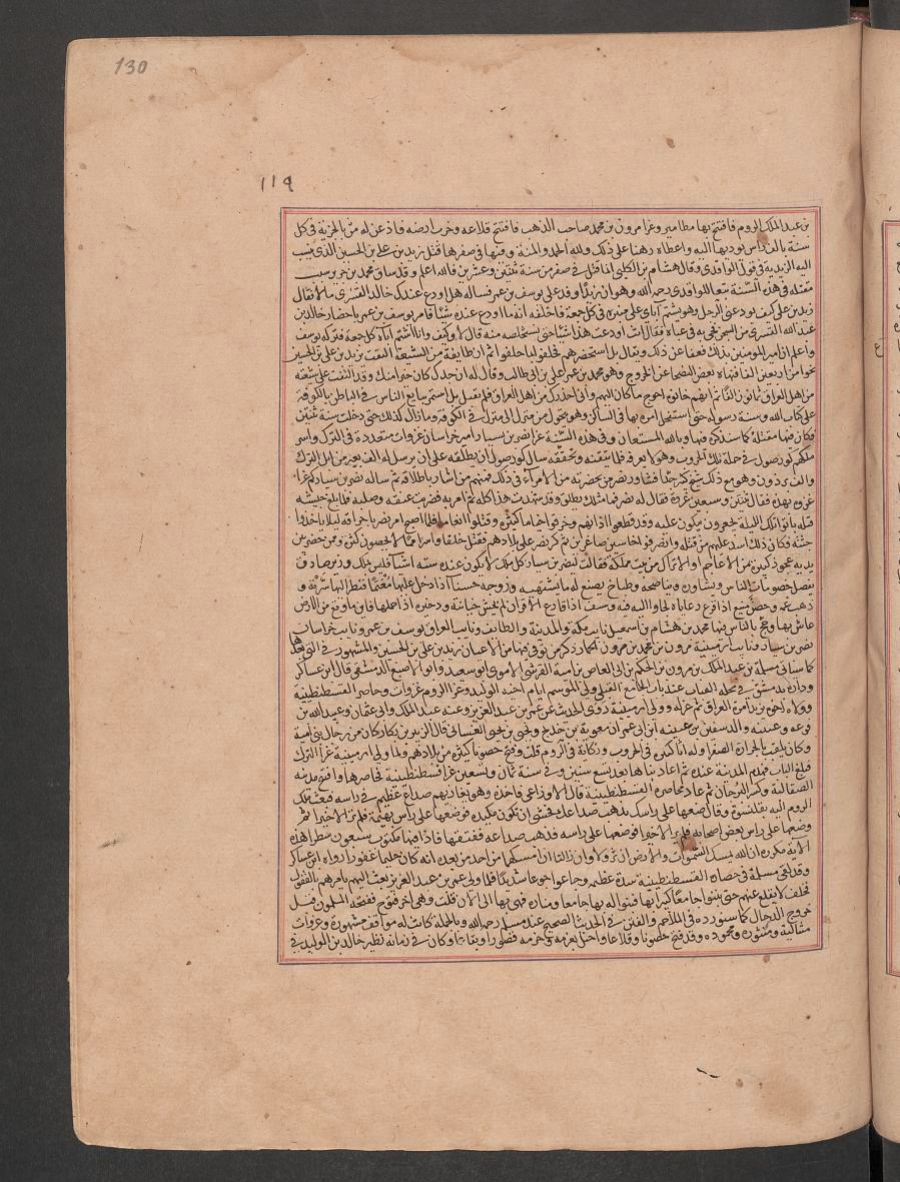 130
١١٩
بن عبد الملك الروم فافتتح بها مطامير وغزا مرون بن محمد صاحب الذهب فافتتح قلاعه وخرب ارضه فاذعن له من بالجزية في كل
سنة بالف راس يوديها اليه واعطاه رهنا على ذلك ولله الحمد والمنة وفيها في صفرها قتل زيد بن علي بن الحسين الذي ينسب
اليه الزيدية في قول الواقدي وقال هشام بن الكلبي انما قتل في صفر من سنة ثنتين وعشرين فالله اعلم وقد ساق محمد بن جرير سبب
مقتله في هذه السنة تبعا للواقدي رحمه الله وهو ان زيدا وفد على يوسف بن عمر فساله هل اودع عندك خالد القسري مالا فقال
زيد بن علي كيف يودعني الرجل وهو يشتم آباي على منبره في كل جمعة فاحلفه انه ما اودع عنده شيئا فامر يوسف بن عمر باحضار خالد بن
عبد الله القسري من السجن فجي به في عباة فقال انت اودعت هذا شيئا حتى نستخلصه منه قال لا وكيف وانا اشتم اباه كل جمعة فتركه يوسف
واعلم امير المومنين بذلك فعفا عن ذلك ويقال بل استحضرهم فحلفوا بما حلفوا ثم ان طايفة من الشيعة التفت بزيد بن علي بن الحسين
نحوا من اربعين الفا فنهاه بعض النصحا عن الخروج وهو محمد بن عمر بن علي بن ابي طالب وقال له ان جدك كان خيرا منك وقد التفت على بيعته
من اهل العراق ثمانون الفا ثم انهم خانوه احوج ما كان اليهم واني احذرك من اهل العراق فلم يقبل بل استمر يبايع الناس في الباطن بالكوفة
على كتاب الله وسنة رسوله حتى استفحل امره بها في الباطن وهو يتحول من منزل الى منزل في الكوفة وما زال كذلك حتى دخلت سنة ثنتين
فكان فيها مقتله كما سنذكره فيها وبالله المستعان وفي هذه السنة غزا نصر بن سيار امير خراسان غزوات متعددة في الترك واسر
ملكهم كورصول في جملة تلك الحروب وهو لا يعرفه فلما تيقنه وتحققه سال كورصول ان يطلقه على ان يرسل له الف بعير من ابل الترك
والف برذون وهو مع ذلك شيخ كبير جدا فشاور نصر من بحضرته من الامراء في ذلك فمنهم من اشار باطلاقه ثم ساله نصر بن سيار كم غزا
غزوه بهذه فقال ثنتين وسبعين غزوة فقال له نصر فما مثلك يطلق وقد شهدت هذا كله ثم امر به فضربت عنقه وصلبه فلما بلغ جيشه
قتله باتوا تلك الليلة يجعرون يبكون عليه وقد قطعوا اذانهم وحرقوا خياما كثيرة وقتلوا انعاما فلما اصبح امر نصر باحراقه ليلا ياخذوا
جثته فكان ذلك اشد عليهم من قتله وانصرفوا خاسين صاغرين ثم كر نصر على بلادهم فقتل خلقا واسر امما لا يحصون كثرة وممن حضر بين
يديه عجوز كبيرة من الاعاجم او الاتراك من بيت مملكة فقالت لنصر بن سيار كل ملك لا يكون عنده سته اشيا فليس بملك وزير صادق
يفصل خصومات الناس ويشاوره ويناصحه وطباخ يصنع له ما يشتهيه وزوجة حسنا اذا دخل عليها مغتما فنظر اليها سرته و
ذهب غمه وحصن منيع اذا فزع رعاياه لجاوا اليه فيه وسيف اذا قارع الاقران لم يخش خيانته وذخيرة اذا حملها فاين ما وقع من الارض
عاش بها وحج بالناس فيها محمد بن هشام بن اسمعيل نايب مكة والمدينة والطايف ونايب العراق يوسف بن عمر ونايب خراسان
نصر بن سيار ونايب ارمينية مرون بن محمد بن مرون الحمار ذكر من توفي فيها من الاعيان زيد بن علي بن الحسين والمشهور في التي بعدها
كما سياتي مسلمة بن عبد الملك بن مرون بن الحكم بن ابي العاص بن امية القرشي الاموي ابو سعيد وابو الاصبغ الدمشقي قال ابن عساكر
وداره بدمشق في محلة القباب عند باب الجامع القبلي ولي الموسم ايام اخيه الوليد وغزا الروم غزوات وحاصر القسطنطينية
وولاه اخوه يزيد امرة العراق ثم عزله وولي ارمينية وروى الحديث عن عمر بن عبد العزيز وعنه عبد الملك وابي عثمان وعبيد الله بن
قزعة وعيينة والد سفين بن عيينه ابن ابي عمران معوية بن خديج ويحيى بن يحيى الغساني قال الزبير بن بكار كان من رجال بني امية
وكان يلقب بالجرادة الصفرا وله اثار كثيرة في الحروب ونكاية في الروم قلت وفتح حصونا كثيرة من بلادهم ولما ولي ارمينية غزا الترك
فبلغ الباب فهدم المدينة عنده ثم اعاد بناها بعد تسع سنين وفي سنة ثمان وتسعين غزا قسطنطينية فحاصرها وافتتح مدينه
الصقالبة وكسر البرجان ثم عاد لمحاصرة القسطنطينية قال الاوزاعي فاخذه وهو يغازيهم صداع عظيم في راسه فبعث ملك
الروم اليه بقلنسوة وقال ضعها على راسك يذهب صداعك فخشي ان تكون مكيدة فوضعها على راس بهيمة فلم ير الا خيرا ثم
وضعها على راس بعض اصحابه فلم ير الا خيرا فوضعها على راسه فذهب صداعه ففتقها فاذا فيها مكتوب سبعون سطرا هذه
الاية مكررة ان الله يمسك السموات والارض ان تزولا ولئن زالتا ان امسكهما من احد من بعده انه كان حليما غفورا رواه ابن عساكر
وقد لقي مسلمة في حصاره القسطنطينية شدة عظيمة وجاعوا جوعا شديدا فلما ولي عمر بن عبد العزيز بعث اليهم يامرهم بالقفول
فحلف لا يقلع عنهم حتى يبنوا جامعا كبيرا بها فبنوا له بها جامعا ومنارة فهي بها الى الان قلت وهي اخر فتوح ففتحه المسلمون قبل
خروج الدجال كما سنورده في الملاحم والفتن في الحديث الصحيح عند مسلم رحمه الله وبالجملة كانت له مواقف مشهورة وغزوات
متتالية ومنثورة ومحموده وقد فتح حصونا وقلاعا واحيا بعزمه وحزمه قصورا وبقاعا وكان في زمانه نظير خالد بن الوليد في